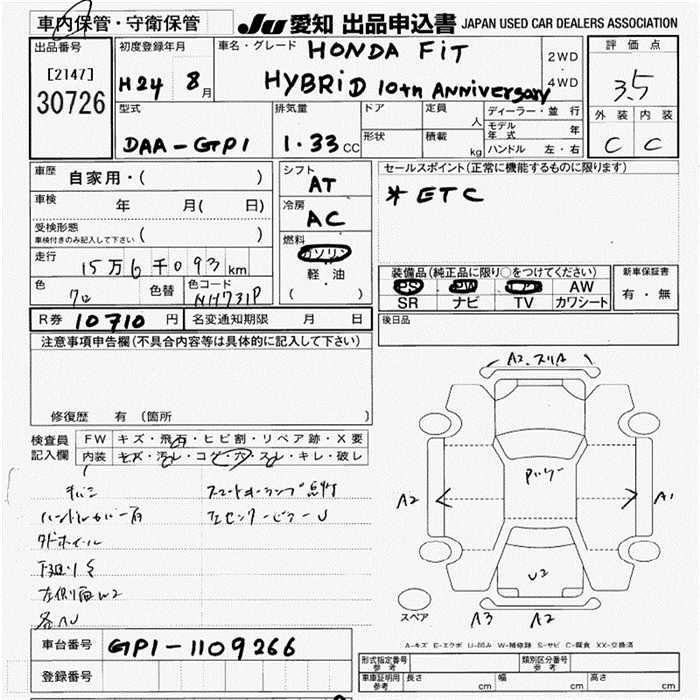 車内保管・守衛保管
JU 愛知 出品申込書 JAPAN USED CAR DEALERS ASSOCIATION
出品番号
[2147]
30726
初度登録年月
H24 8月
車名・グレード HONDA FiT
HYBRiD 10th ANNiversary
2WD
・
4WD
評価点
3.5
外装 内装
C C
型式
DAA-GP1
排気量
1.33 CC
ドア
形状
定員 人
積載 kg
ディーラー・並行
モデル年式 年
ハンドル 左・右
車歴 自家用・( )
車検 年 月( 日)
受検形態
車検付きのみ記入して下さい ( )
走行 15万6千093km
色 色替 色コード
NH731P
シフト
AT
冷房
AC
燃料
ガソリン
軽油
( )
セールスポイント(正常に機能するものに限ります)
* ETC
装備品(純正品に限り○をつけてください)
PS PW エア AW
SR ナビ TV カワシート
新車保証書
有・無
R券 10710 円 名変通知期限 月 日
後日品
注意事項申告欄(不具合内容等は具体的に記入して下さい)
修復歴 有 (箇所
検査員記入欄
FW キズ・飛石・ヒビ割・リペア跡・X要
内装 キズ・汚レ・コゲ・穴・スレ・キレ・破レ
タドホイール
下廻りS
左側面W2
各AU
A2.スリA
A2
A1
U2
A3 A2
スペア
A-キズ E-エクボ U-凹み W-補修跡 S-サビ C-腐食 XX-交換済
車台番号 GP1-1109266
登録番号
形式指定番号 参考
類別区分番号 参考
車庫証明用 参考 長さ cm 幅 cm 高さ cm